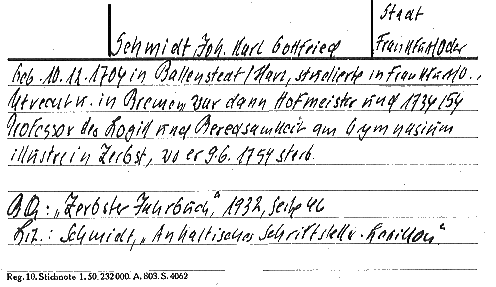 Stadt
Schmidt, Joh. Karl Gottfried Frankfurt/Oder
Geb. 10.12.1704 in Ballenstedt/Harz, studierte in Frankfurt/O.,
Utrecht u. in Bremen, war dann Hofmeister und 1734/54
Professor der Logik und Beredsamkeit am Gymnasium
illustre in Zerbst, wo er 9.6.1754 starb.
BQ: „Zerbster Jahrbuch", 1932, Seite 46
Lit.: Schmidt, „Anhaltisches Schriftstell.-Lexikon"
Reg. 10. Stichnote 1. 50. 232000. A. 803. S. 4062